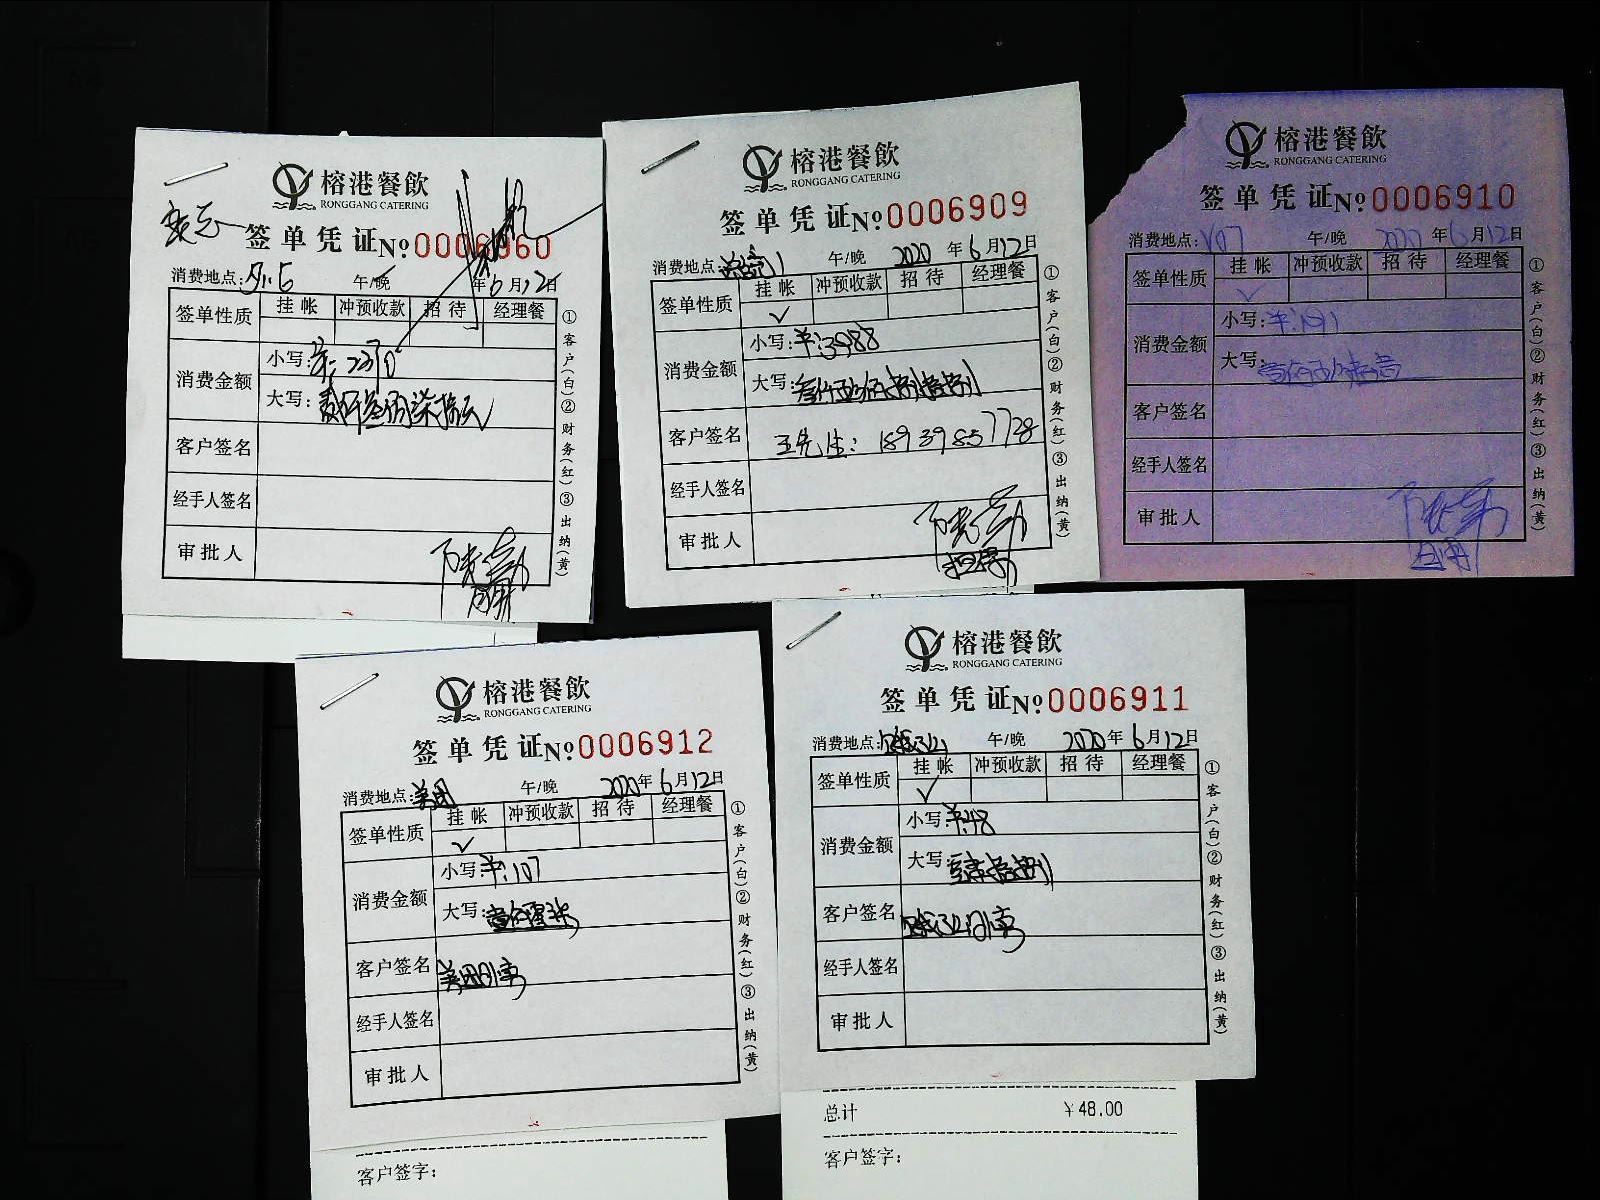 榕港餐飲
RONGGANG CATERING
签单凭证No.0006960
消费地点: 午/晚 年6月12日
签单性质 挂帐 冲预收款 招待 经理餐
消费金额 小写:
大写:
客户签名
经手人签名
审批人
①客户(白)②财务(红)③出纳(黄)
榕港餐飲
RONGGANG CATERING
签单凭证No.0006909
消费地点: 午/晚 2020年6月12日
签单性质 挂帐 冲预收款 招待 经理餐
✓
消费金额 小写:羊:3988
大写:
客户签名 王先生:18939857728
经手人签名
审批人
①客户(白)②财务(红)③出纳(黄)
榕港餐飲
RONGGANG CATERING
签单凭证No.0006910
消费地点:V07 午/晚 2020年6月12日
签单性质 挂帐 冲预收款 招待 经理餐
✓
消费金额 小写:
大写:
客户签名
经手人签名
审批人
①客户(白)②财务(红)③出纳(黄)
榕港餐飲
RONGGANG CATERING
签单凭证No.0006912
消费地点:美团 午/晚 2020年6月12日
签单性质 挂帐 冲预收款 招待 经理餐
✓
消费金额 小写:羊:107
大写:壹佰零柒
客户签名
经手人签名
审批人
①客户(白)②财务(红)③出纳(黄)
客户签字:
榕港餐飲
RONGGANG CATERING
签单凭证No.0006911
消费地点: 午/晚 2020年6月12日
签单性质 挂帐 冲预收款 招待 经理餐
✓
消费金额 小写:羊:48
大写:
客户签名
经手人签名
审批人
①客户(白)②财务(红)③出纳(黄)
总计 ¥48.00
客户签字: